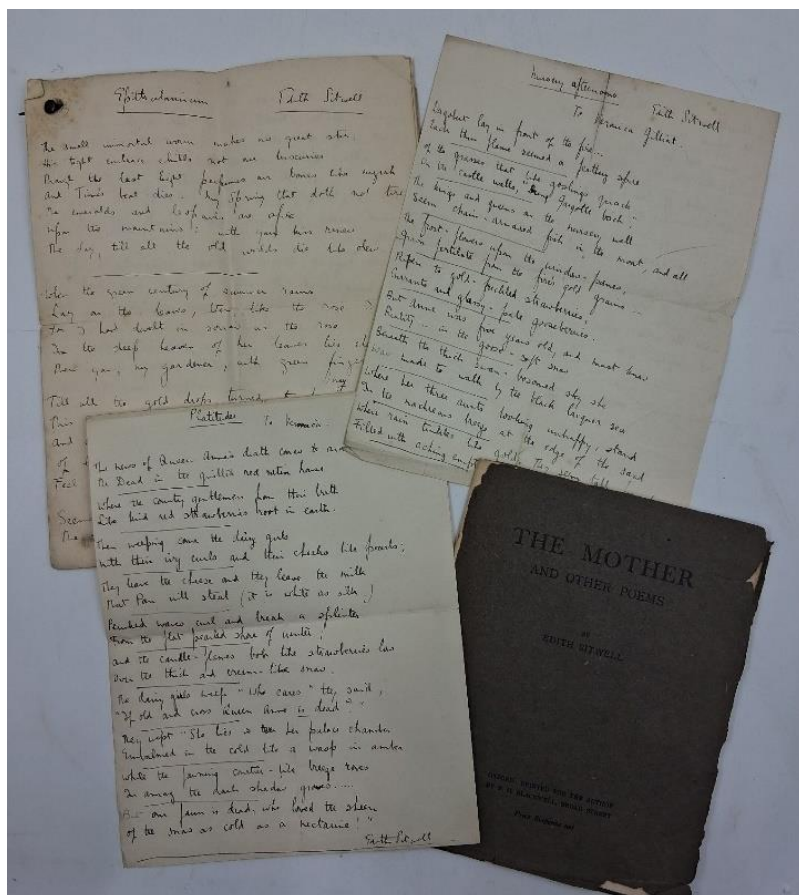 Epithalamium Edith Sitwell
The small immortal worm makes no great stir.
His tight embrace chills not our luxuries
Though the last light perfumes our bones like myrrh
and Time's beat dies. My Spring that doth not tire
The emeralds and are afire
upon the mountains; with your kiss renew
the day, till all the old worlds die like dew.
When the green century of summer rains
Lay on the leaves, then like the rose I
For I had dwelt in sorrow as the rose
In the deep heaven of her leaves lies
Then you, my gardener, with green fingers
Till all the gold drops turned to
This
And
of
Feel
Seem
The
Nursery afternoons Edith Sitwell
To Veronica Gilliat.
lay in front of the fire...
Each thin flame seemed a feathery spire
Of the grasses that like goslings quack
On the castle walls, "
The kings and queens on the nursery wall
Seem chain-armoured fish in the moat, and all
The frost-flowers upon the window-panes,
Grown fertilate from the fire's gold grains...
Ripen to gold-freckled strawberries,
Currants and glassy-pale gooseberries.
But Anne was five years old, and must know
Reality – in the goose-soft snow
Beneath the thick swan-bosomed sky she
Was made to walk by the black lacquer sea
Where her three aunts looking unhappy, stand
In the nacreous breeze at the edge of the sand
Where rain tinkles like gold
Filled with aching
Platitudes To Veronica.
The news of Queen Anne's death comes to
The Dead in the quilted red satin house
Where the country gentlemen from their birth
Like kind red strawberries root in earth.
Then weeping come the dairy girls
With their ivy curls and their cheeks like pearls;
They leave the cheese and they leave the milk
That Pan will steal (it is white as silk.)
Peruked waves curl and break a splinter
From the flat pearled shore of winter!
And the candle-flames bob like strawberries low
Over the thick and cream-like snow.
The dairy girls weep "Who cares" they said,
"If old and cross Queen Anne is dead"
They wept "She lies in her palace chamber
Embalmed in the cold like a wasp in amber
While the fawning courtier-like breeze roves
In among the dark shadow groves.....
But our faun is dead, who loved the sheen
Of the snow as cold as a nectarine!"
Edith Sitwell
THE MOTHER
AND OTHER POEMS
BY
EDITH SITWELL
OXFORD: PRINTED FOR THE AUTHOR
BY B. H. BLACKWELL, BROAD STREET
Price Sixpence net